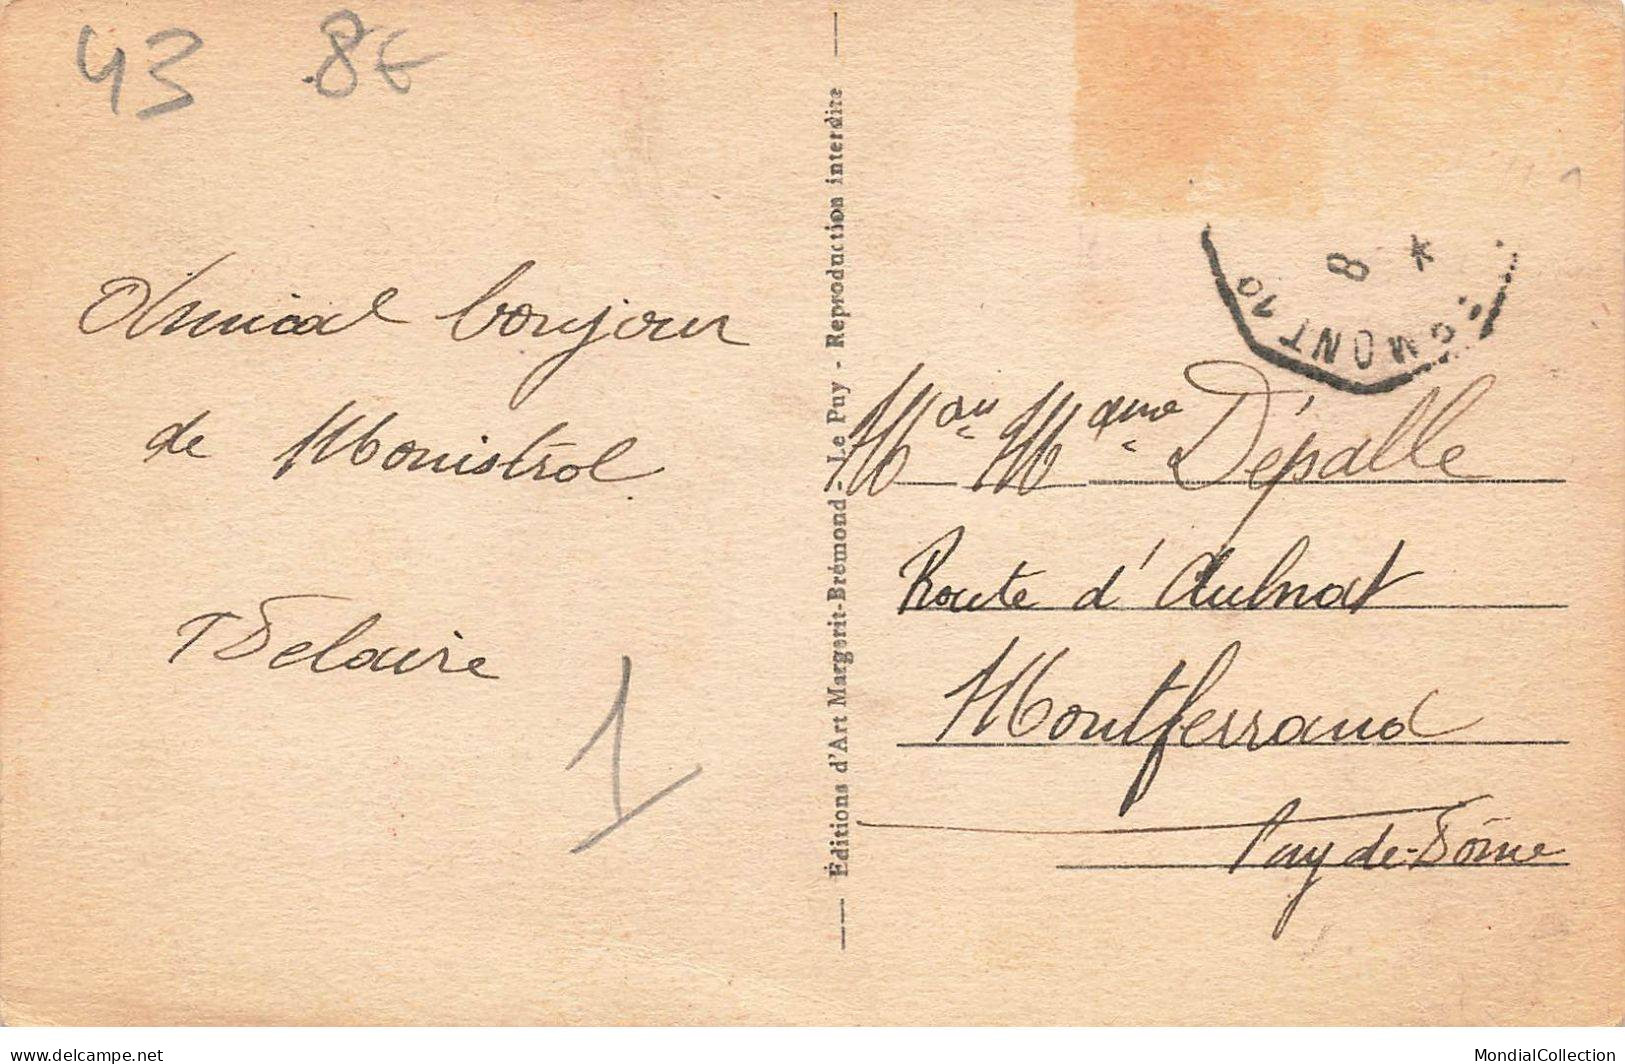 43 8€
Amical bonjour
de Monistrol
Delaire
1
Éditions d'Art Margerit-Brémond - Le Puy - Reproduction interdite
8
MONT
Mr ou Mme Dépalle
Route d'Aulnat
Montferrand
Puy-de-Dôme
www.delcampe.net
MondialCollection